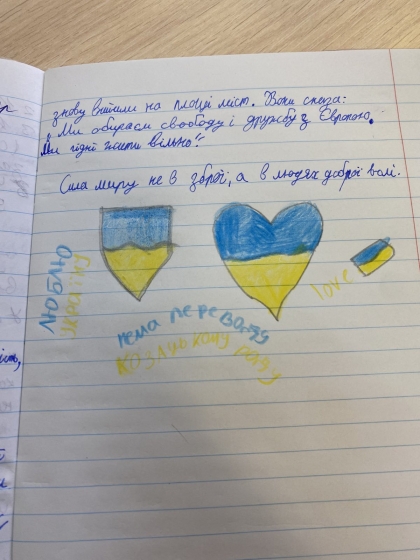 знову вийшли на площі міст. Вони сказа:
"Ми обираєм свободу і дружбу з Європою.
Ми гідні жити вільно!"
Сила миру не в зброї, а в людях доброї волі.
ЛЮБЛЮ
Україну
love
нема переводу
козацькому роду
ість,